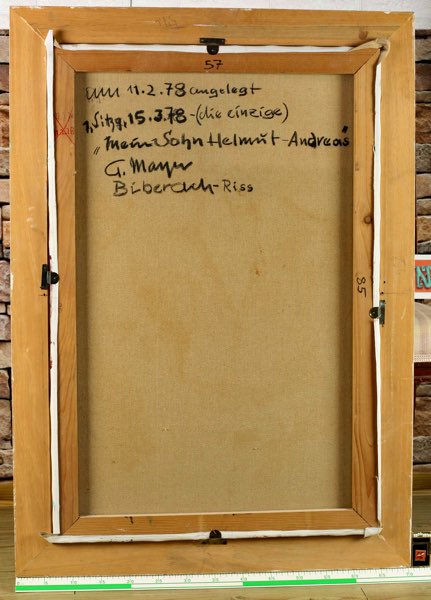 57
am 11.2.78 angelegt
1. Sitzg. 15.3.78 - (die einzige)
"Mein Sohn Helmut-Andreas"
G. Mayer
Biberach-Riss
85
N